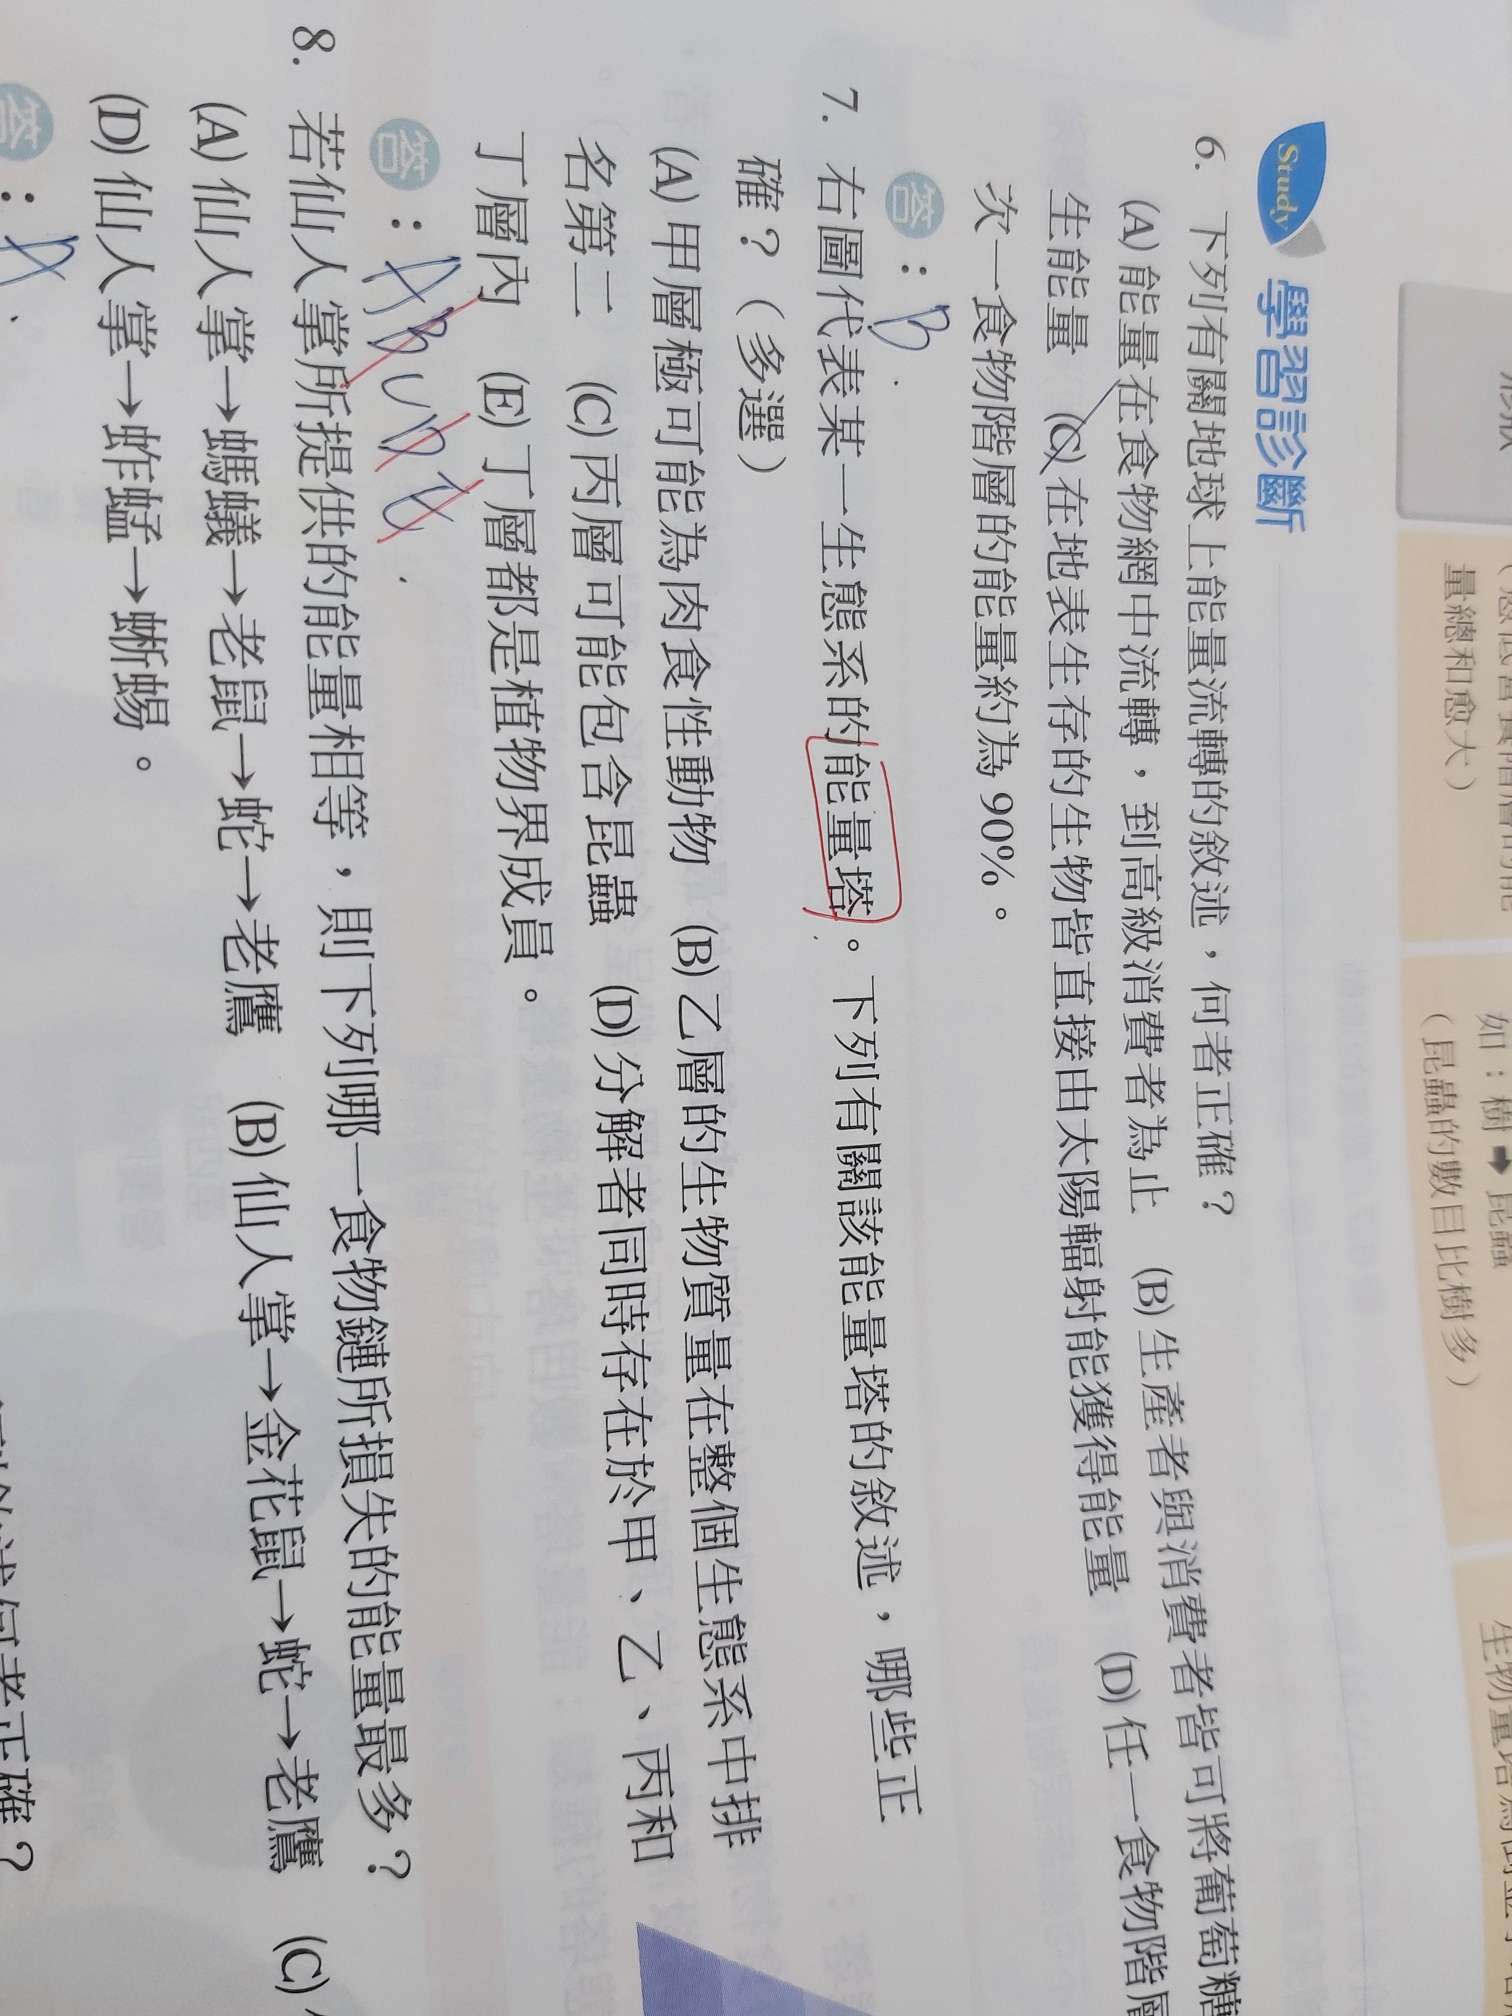 量總和愈大）
如：樹➡昆蟲
（昆蟲的數目比樹多）
Study 學習診斷
6. 下列有關地球上能量流轉的敘述，何者正確？
(A) 能量在食物網中流轉，到高級消費者為止 (B) 生產者與消費者皆可將葡萄糖
生能量 (C) 在地表生存的生物皆直接由太陽輻射能獲得能量 (D) 任一食物階層
次一食物階層的能量約為 90%。
答：B
7. 右圖代表某一生態系的能量塔。下列有關該能量塔的敘述，哪些正
確？（多選）
(A) 甲層極可能為肉食性動物 (B) 乙層的生物質量在整個生態系中排
名第二 (C) 丙層可能包含昆蟲 (D) 分解者同時存在於甲、乙、丙和
丁層內 (E) 丁層都是植物界成員。
答：ABCDE
8. 若仙人掌所提供的能量相等，則下列哪一食物鏈所損失的能量最多？
(A) 仙人掌→螞蟻→老鼠→蛇→老鷹 (B) 仙人掌→金花鼠→蛇→老鷹 (C)
(D) 仙人掌→蚱蜢→蜥蜴。
答：A
何者正確？